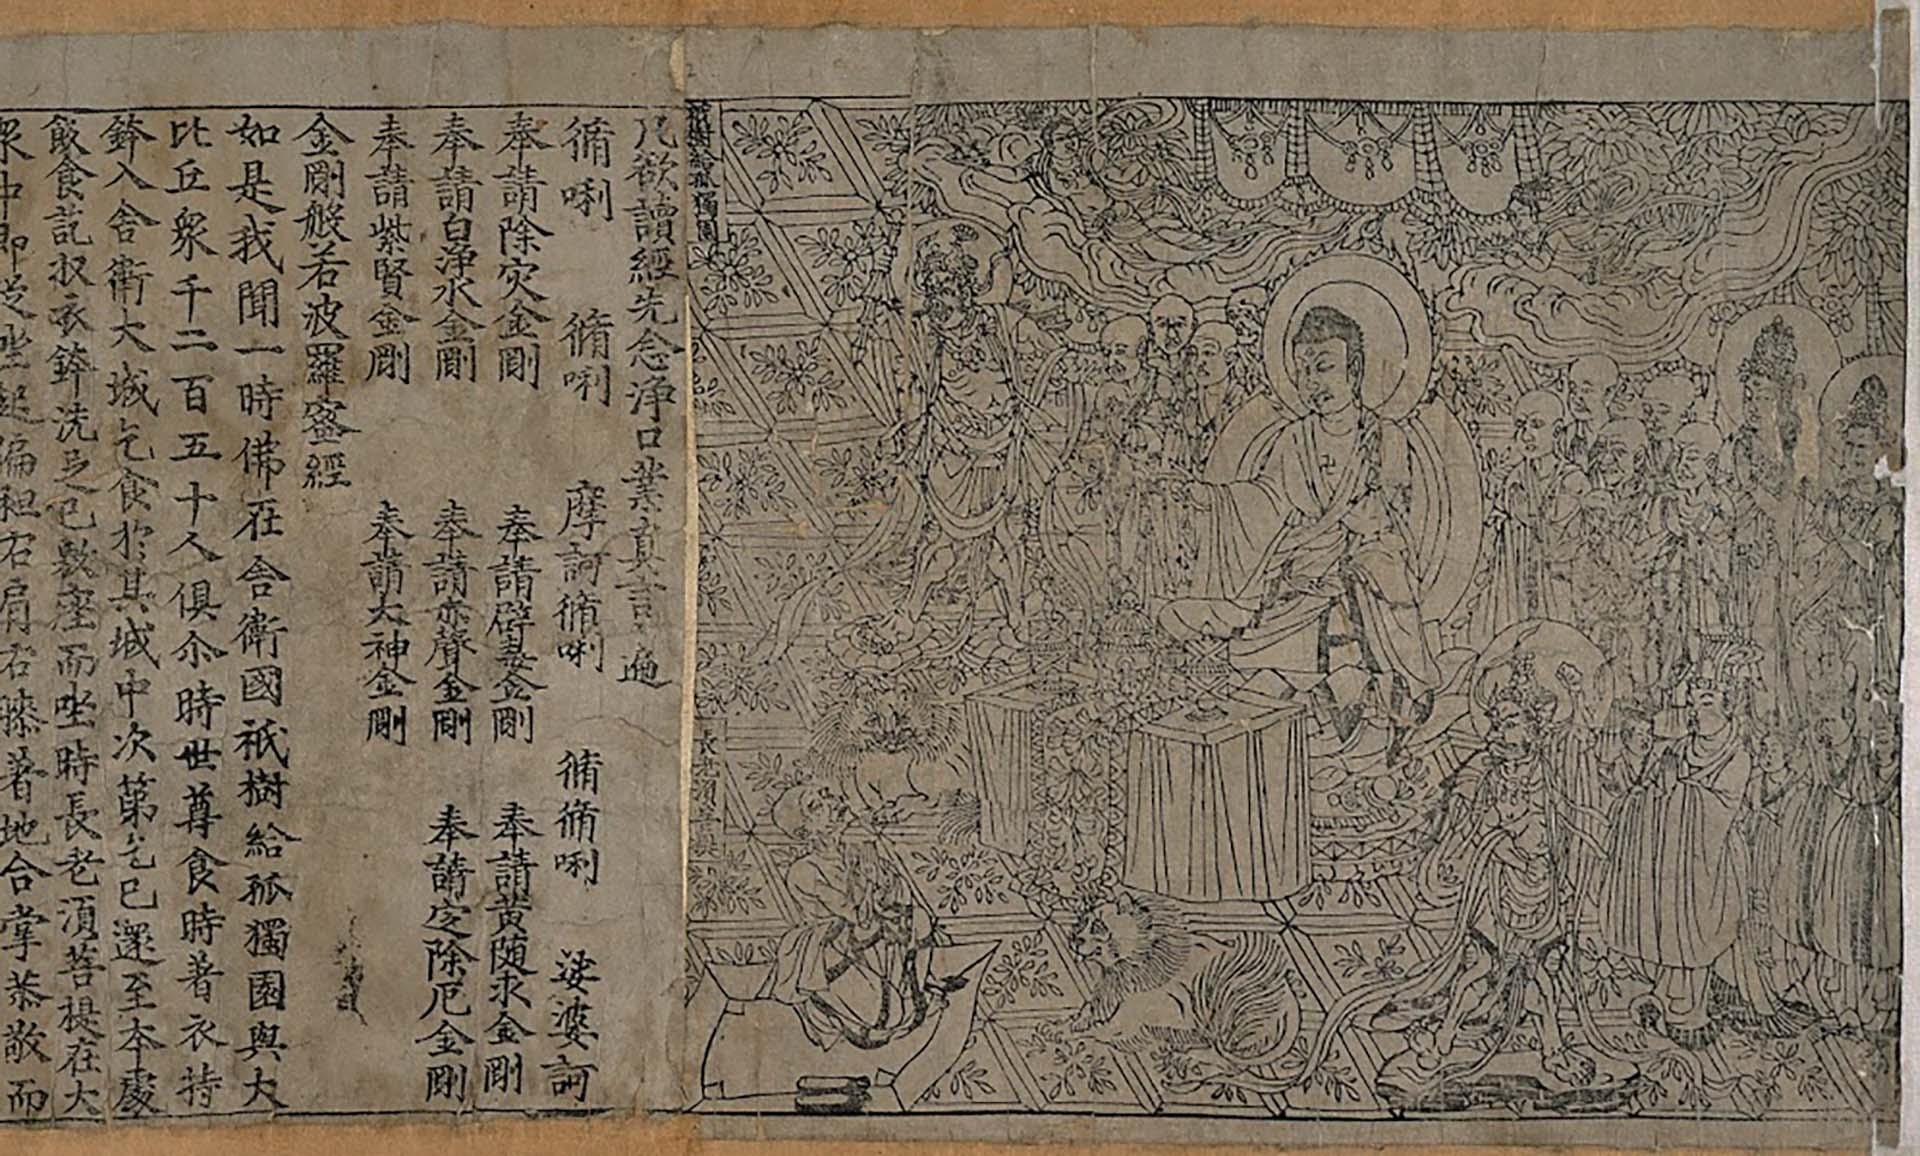 祇樹給孤獨園
長老須菩提
凡欲讀經先念淨口業真言遍
脩唎 脩唎 摩訶脩唎 脩脩唎 娑婆訶
奉請除灾金剛 奉請辟毒金剛 奉請黄随求金剛
奉請白淨水金剛 奉請赤聲金剛 奉請定除厄金剛
奉請紫賢金剛 奉請大神金剛
金剛般若波羅蜜經
如是我聞一時佛在舍衛國祇樹給孤獨園與大
比丘衆千二百五十人俱尒時世尊食時著衣持
鉢入舍衛大城乞食於其城中次第乞已還至本處
飯食訖収衣鉢洗足已敷座而坐時長老湏菩提在大
衆中即從坐起偏袒右肩右膝著地合掌恭敬而